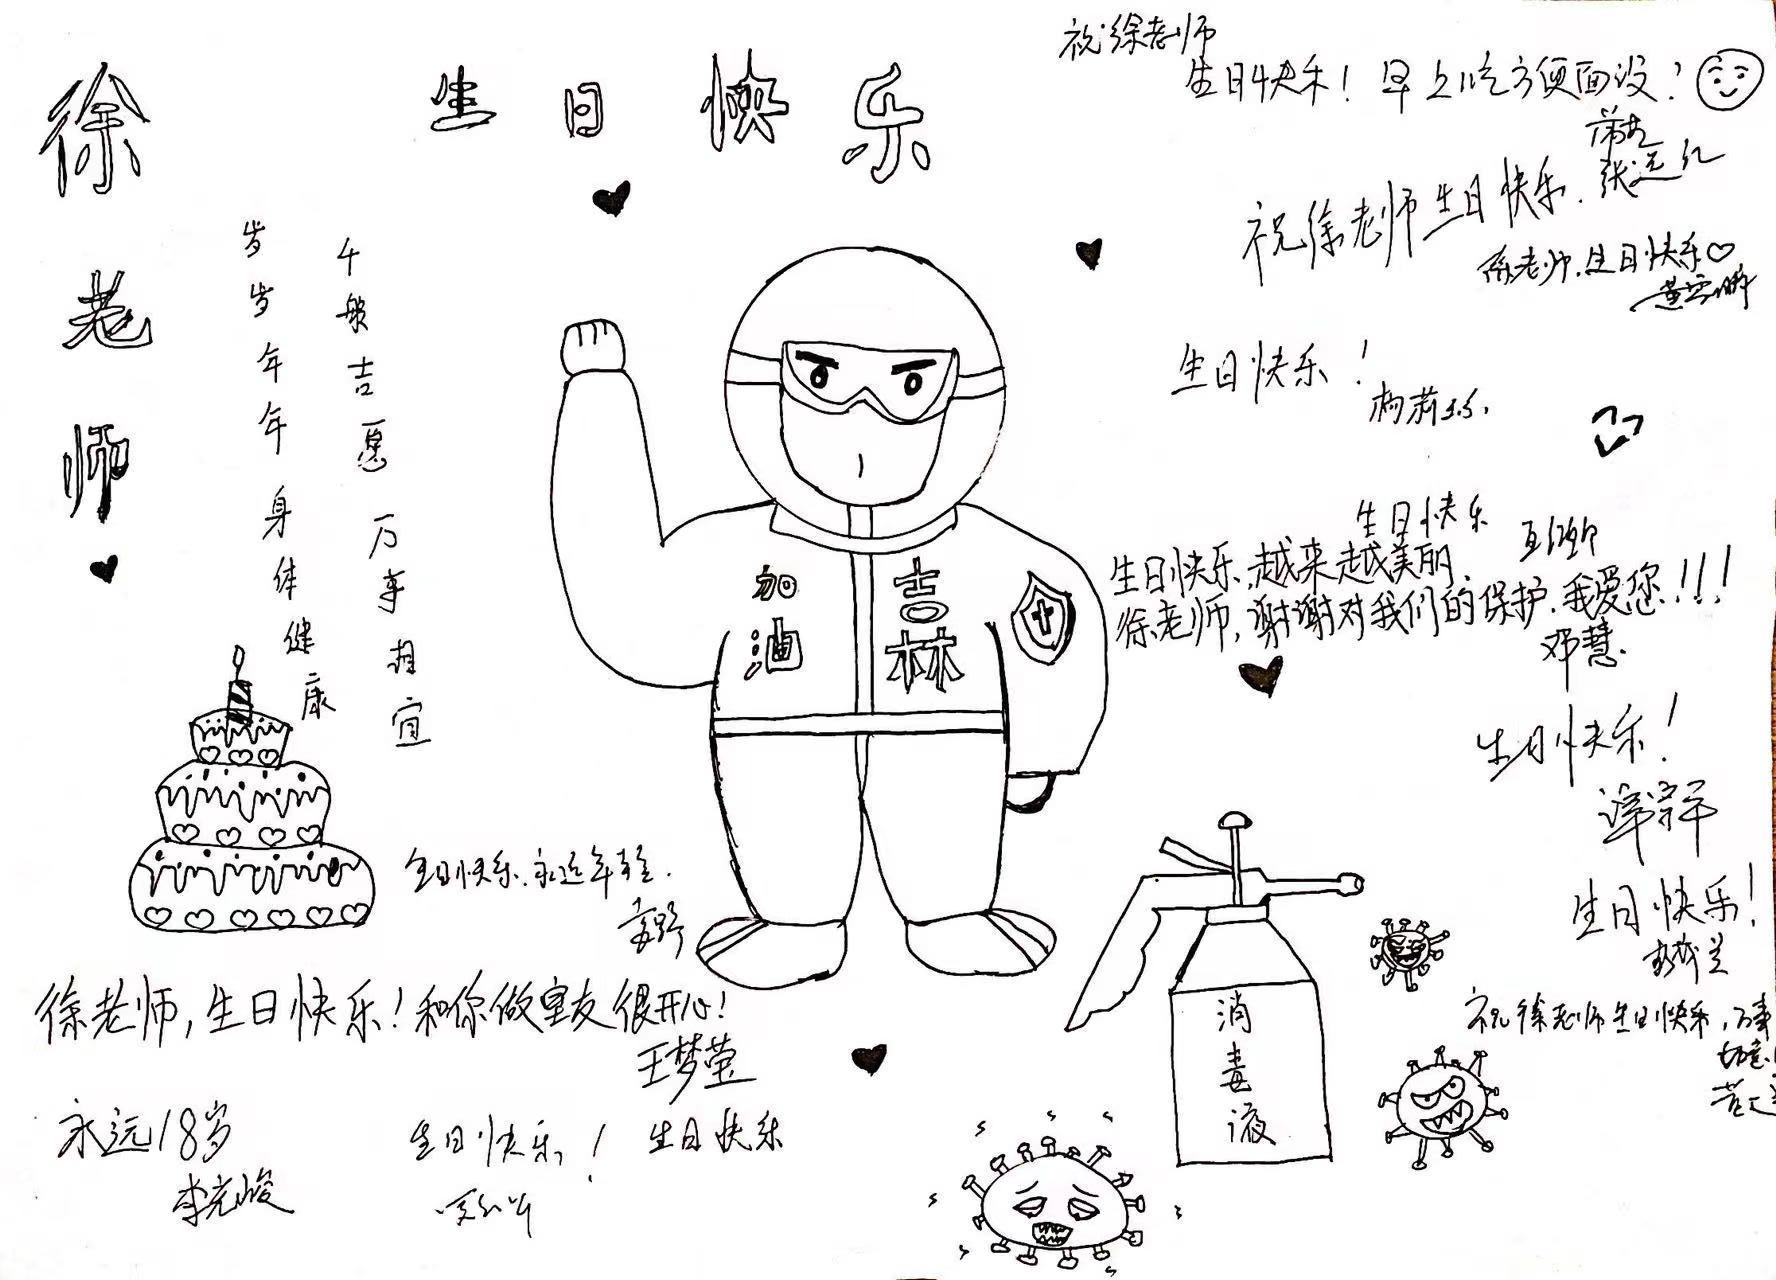 徐老师
生日快乐
岁岁年年身体健康
千般吉愿万事相宜
祝徐老师
生日快乐！早上吃方便面没？
祝徐老师生日快乐.
徐老师.生日快乐♡
生日快乐！
生日快乐
生日快乐、越来越美丽
徐老师,谢谢对我们的保护.我爱您!!!
邓慧.
生日快乐！
生日快乐！
祝徐老师生日快乐,万事
加油
吉林
消毒液
生日快乐.永远年轻.
徐老师,生日快乐!和你做室友很开心!
王梦莹
永远18岁
李克峻
生日快乐,！
生日快乐